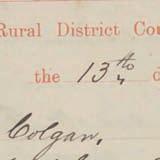 Rural District Cou
the 13th d
Colgan,